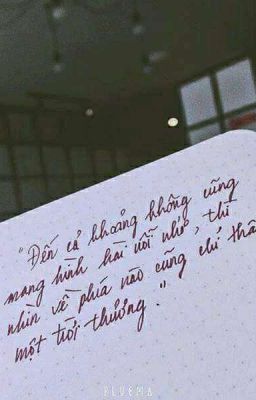 "Đến cả khoảng không cũng
mang hình hài nỗi nhớ, thì
nhìn về phía nào cũng chỉ thấ
một trời thương."
BLUEMA